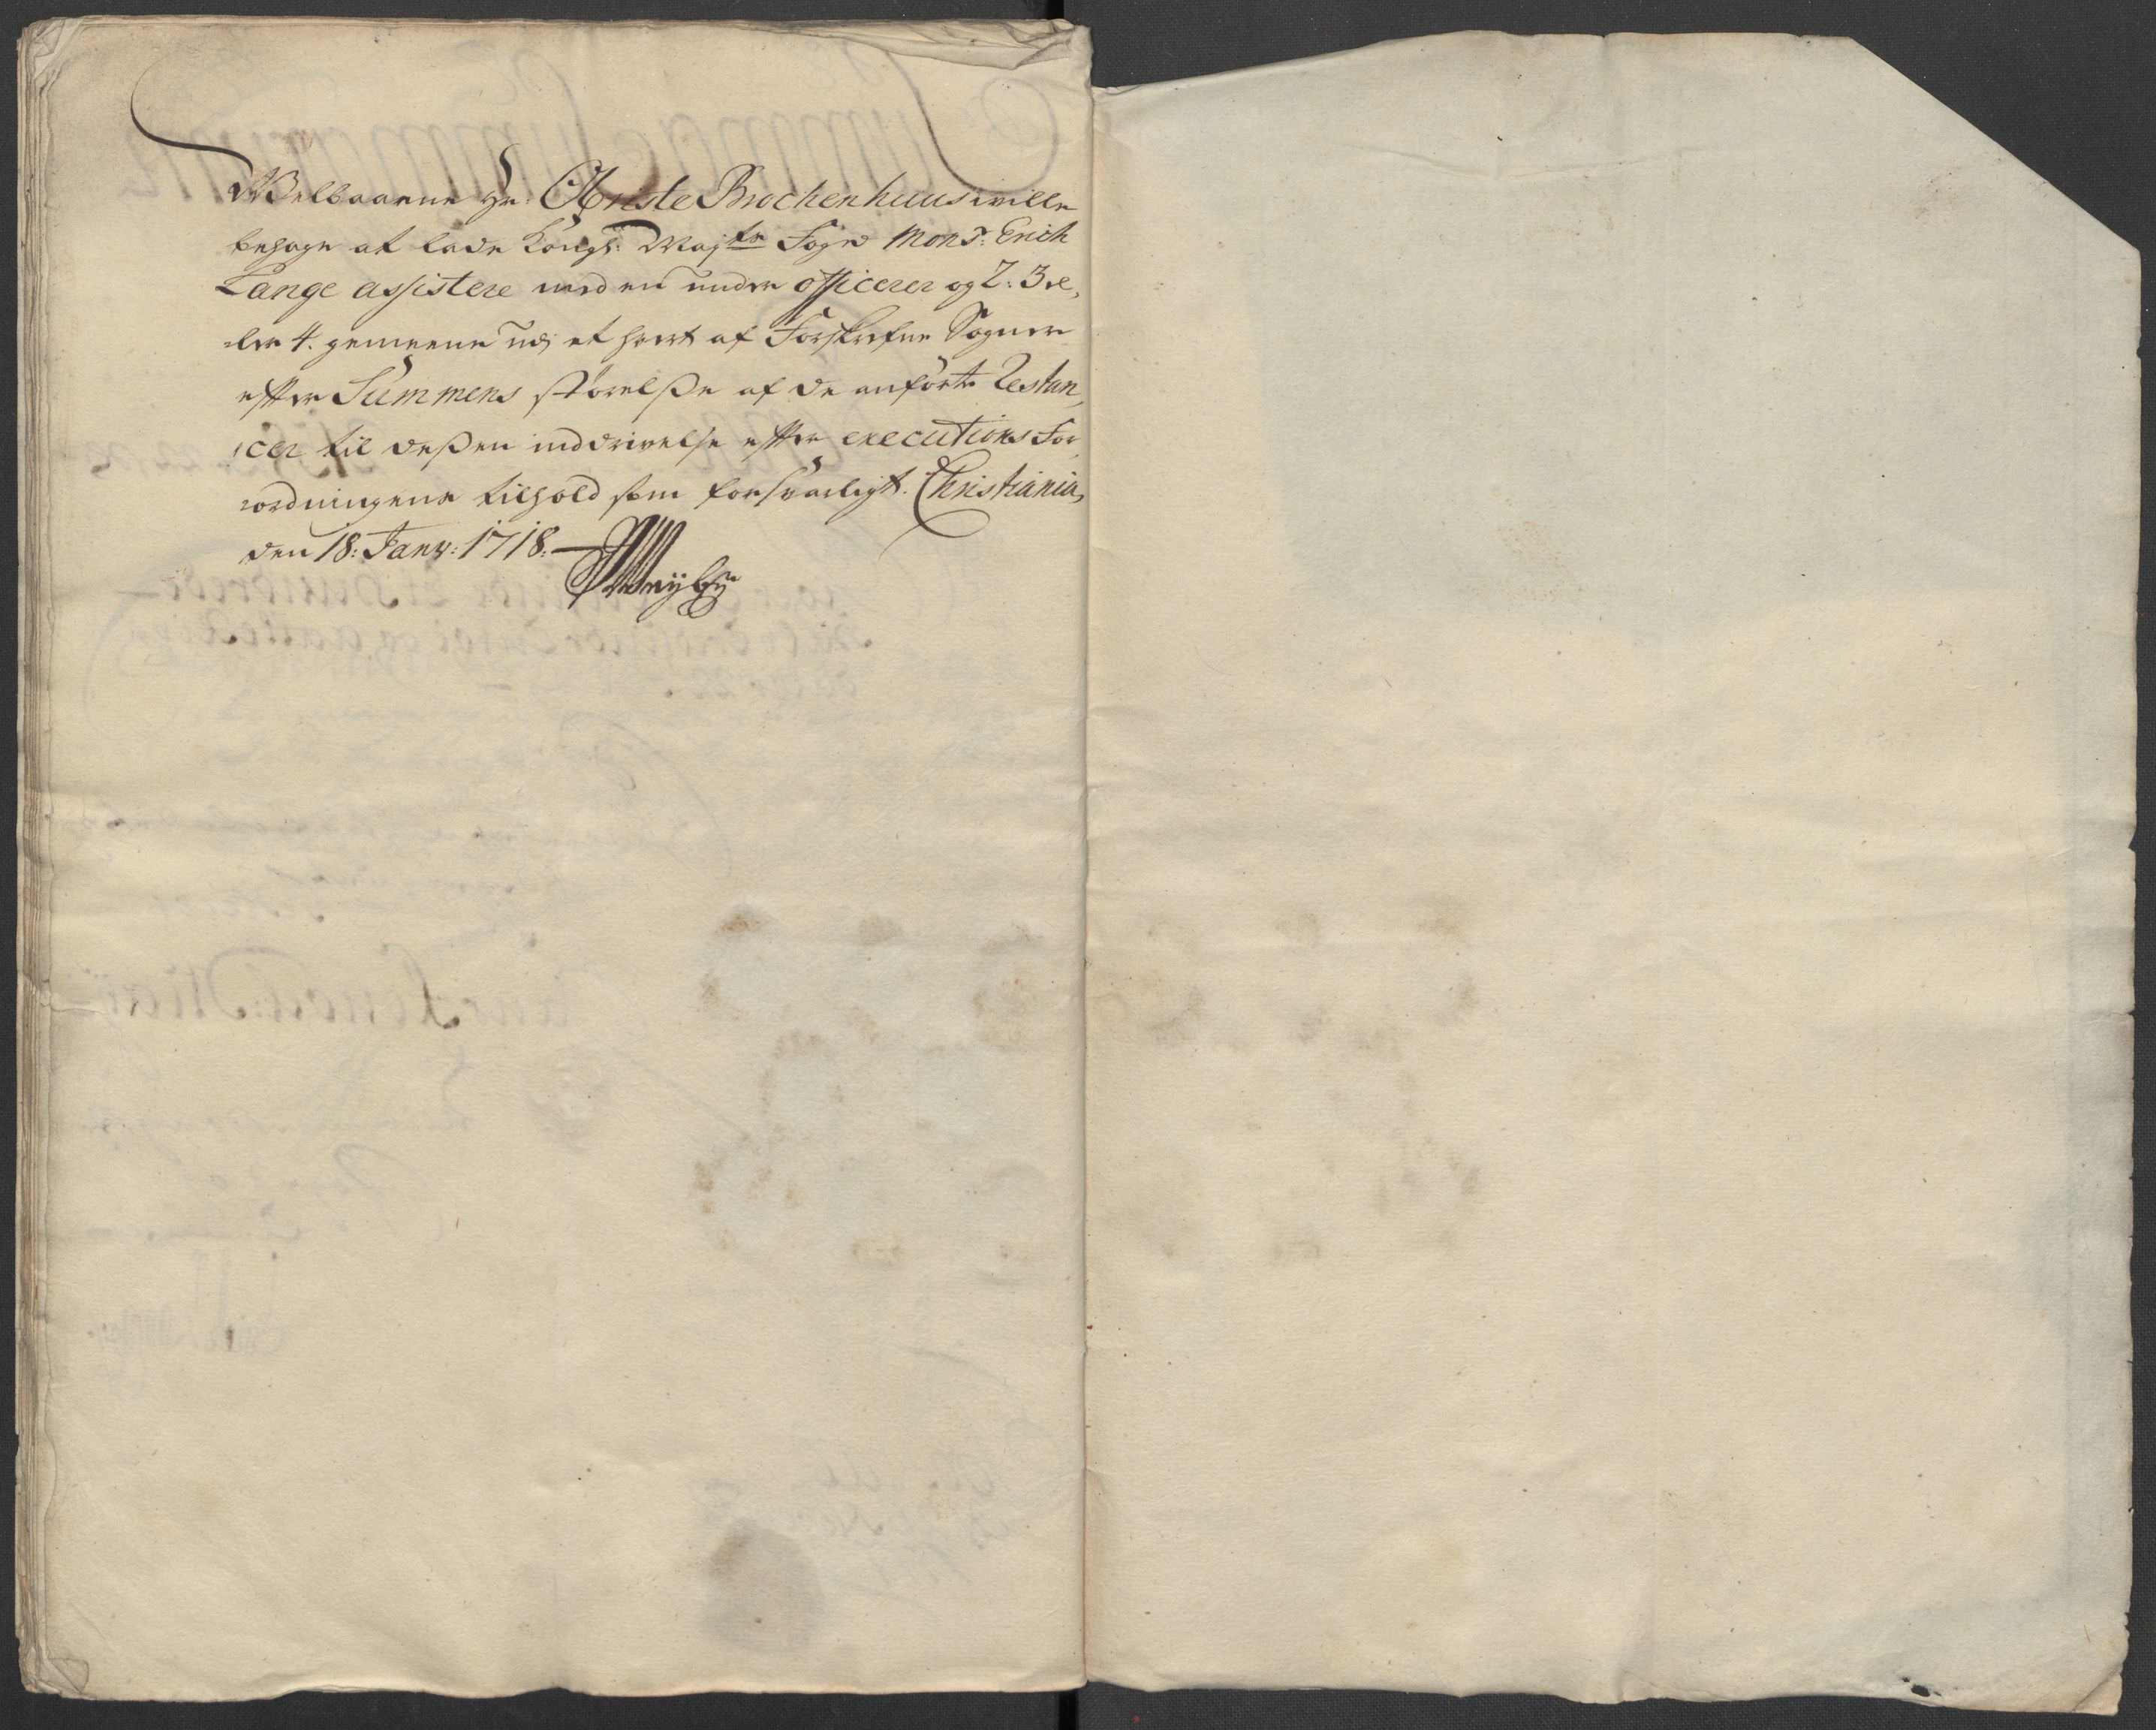 Welbaarne Hr: Obriste Brochenhuus wille
behage at lade Kongl: Maj.ts Foged Mons.r Erich
Lange assistere med en under officerer og 2: 3 el,
ler 4. gemeene udj et hvert af Forskrefne Sogner
efter Summens störrelße af de anförte Restan,
cer til deßen inddrivelse efter executions For
ordningens tilhold som forsvarligt. Christiania,
den 18: Janv: 1718.